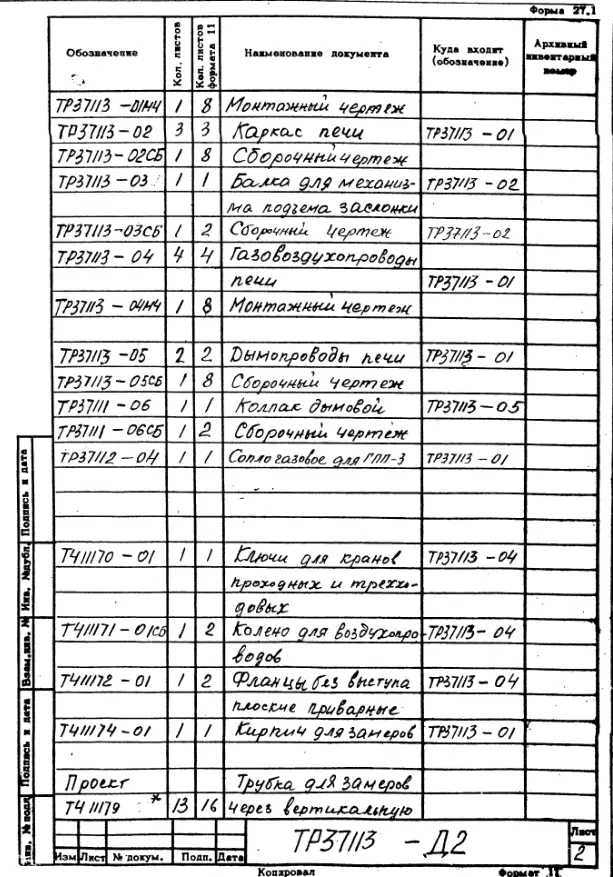 Форма 27.1
Обозначение Кол. листов Кол. листов формата 11 Наименование документа Куда входит (обозначение) Архивный инвентарный номер
ТР37113-01МЧ 1 8 Монтажный чертеж
ТР37113-02 3 3 Каркас печи ТР37113-01
ТР37113-02СБ 1 8 Сборочный чертеж
ТР37113-03 1 1 Балка для механиз- ТР37113-02
ма подъема заслонки
ТР37113-03СБ 1 2 Сборочный чертеж ТР37113-02
ТР37113-04 4 4 Газовоздухопроводы
печи ТР37113-01
ТР37113-04МЧ 1 8 Монтажный чертеж
ТР37113-05 2 2 Дымопроводы печи ТР37113-01
ТР37113-05СБ 1 8 Сборочный чертеж
ТР37111-06 1 1 Колпак дымовой ТР37113-05
ТР37111-06СБ 1 2 Сборочный чертеж
ТР37112-04 1 1 Сопло газовое для ГПП-3 ТР37113-01
Т411170-01 1 1 Ключи для кранов ТР37113-04
проходных и треххо-
довых
Т411171-01СБ 1 2 Колено для воздухопро- ТР37113-04
водов
Т411172-01 1 2 Фланцы без выступа ТР37113-04
плоские приварные
Т411174-01 1 1 Кирпич для замеров ТР37113-01
Проект Трубка для замеров
Т411179 * 13 16 через вертикальную
ТР37113-Д2
Лист
2
Изм Лист № докум. Подп. Дата
Копировал Формат 11
Инв. № подл Подпись и дата Взам.инв. № Инв. №дубл. Подпись и дата